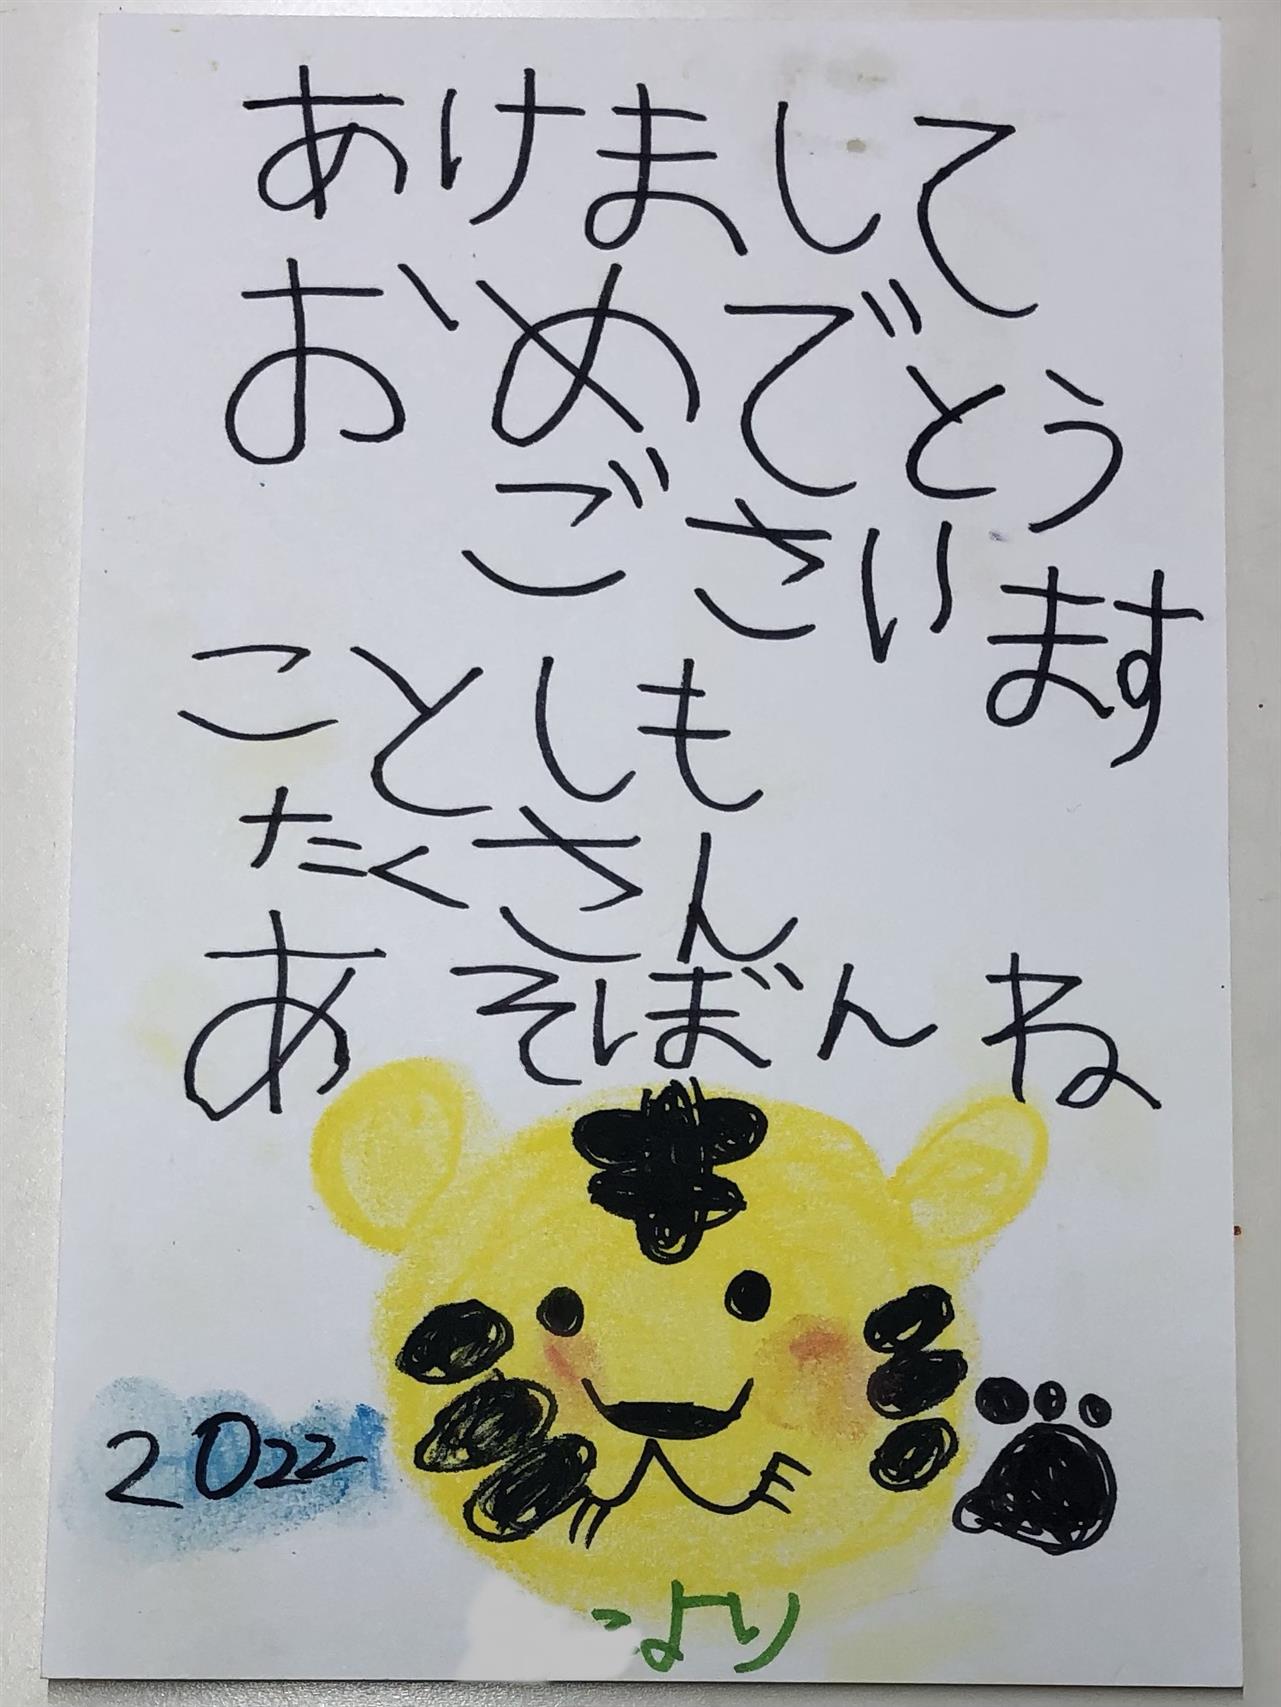 あけまして
おめでとう
ごさいます
ことしも
たくさん
あそばんね
2022
より